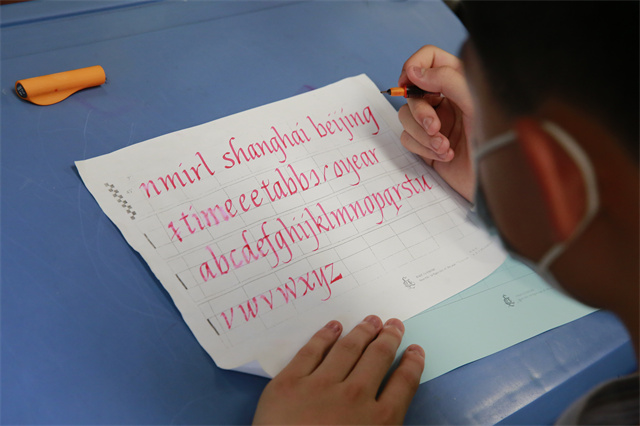 nmirl shanghai beijing
time eetabb year
abcdefghijklmnopqrstu
vwvvwxyz